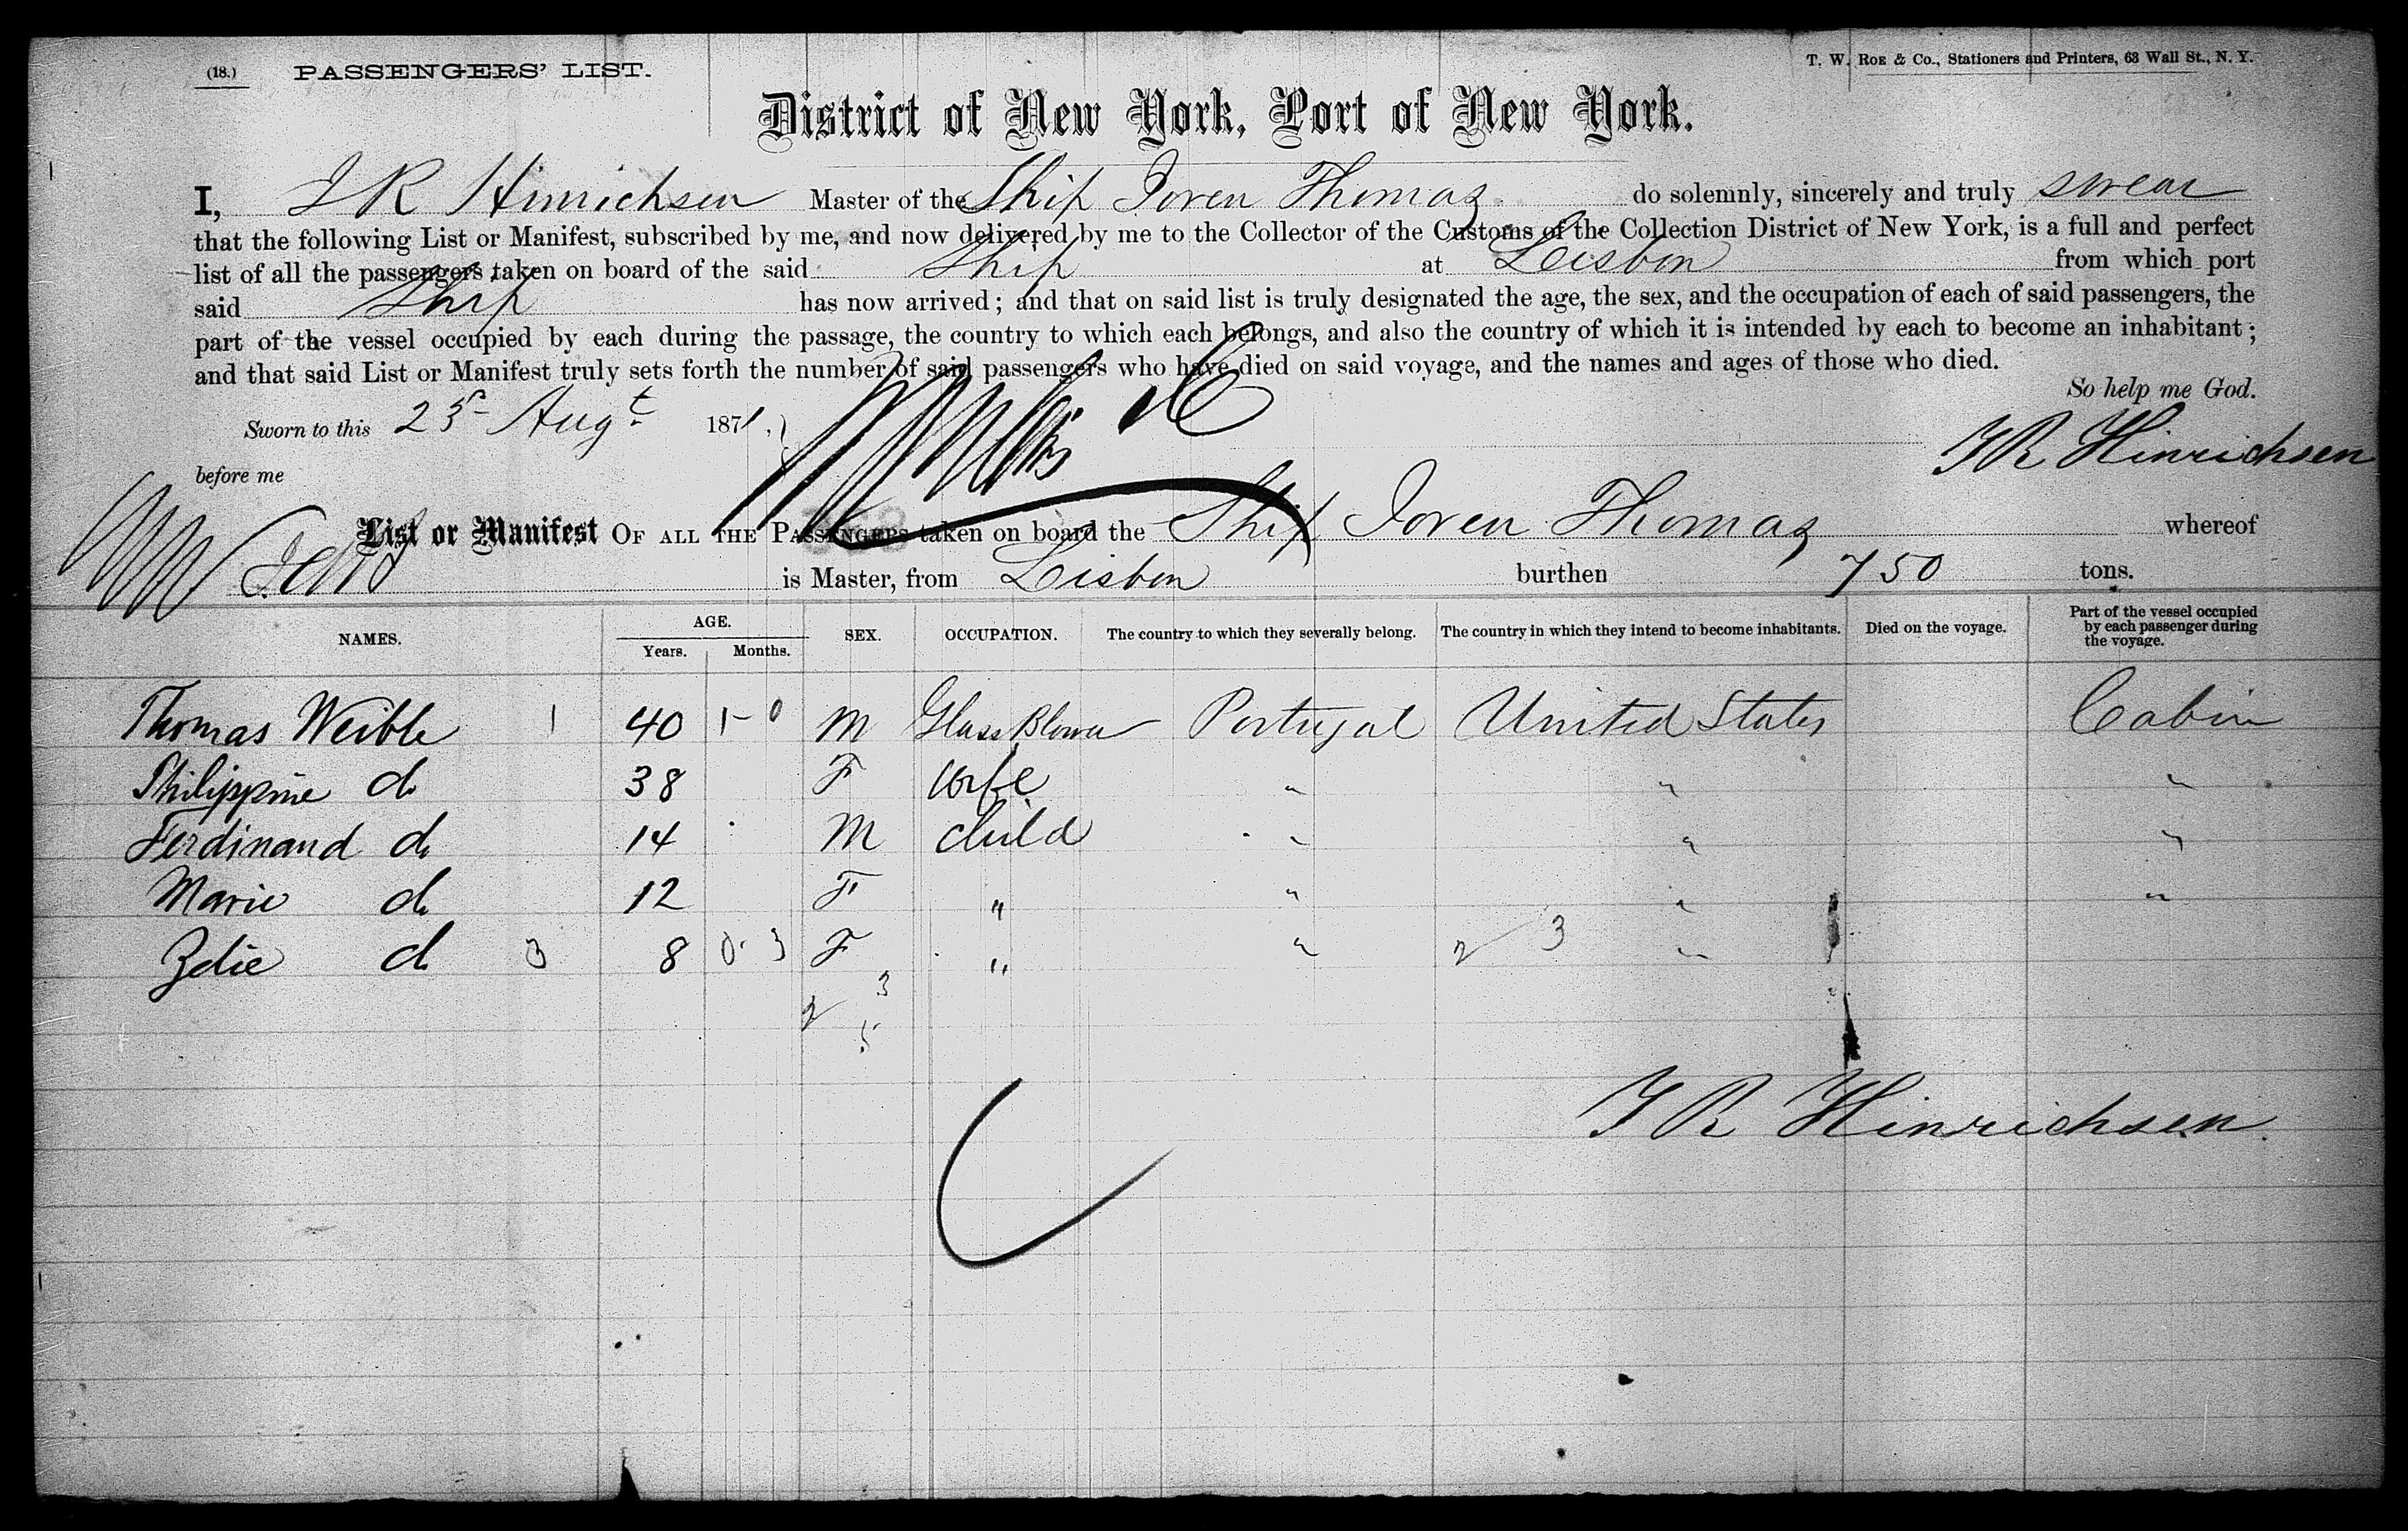 (18.) PASSENGERS' LIST. T. W. ROE & Co., Stationers and Printers, 63 Wall St., N. Y.
District of New York, Port of New York.
I, J R Hinrichsen Master of the Ship Joven Thomaz do solemnly, sincerely and truly swear
that the following List or Manifest, subscribed by me, and now delivered by me to the Collector of the Customs of the Collection District of New York, is a full and perfect
list of all the passengers taken on board of the said Ship at Lisbon from which port
said Ship has now arrived; and that on said list is truly designated the age, the sex, and the occupation of each of said passengers, the
part of the vessel occupied by each during the passage, the country to which each belongs, and also the country of which it is intended by each to become an inhabitant;
and that said List or Manifest truly sets forth the number of said passengers who have died on said voyage, and the names and ages of those who died.
So help me God.
Sworn to this 25 Augt 1871,
J R Hinrichsen
before me
List or Manifest OF ALL THE PASSENGERS taken on board the Ship Joven Thomaz whereof
is Master, from Lisbon burthen 750 tons.
NAMES. AGE. Years. Months. SEX. OCCUPATION. The country to which they severally belong. The country in which they intend to become inhabitants. Died on the voyage. Part of the vessel occupied by each passenger during the voyage.
Thomas Weible 1 40 1-0 M Glass Blower Portugal United States Cabin
Philippine do 38 F wife " " "
Ferdinand do 14 M child " " "
Marie do 12 F " " " "
Zelie do 3 8 0-3 F " " 2 3 "
2 3
5
J R Hinrichsen